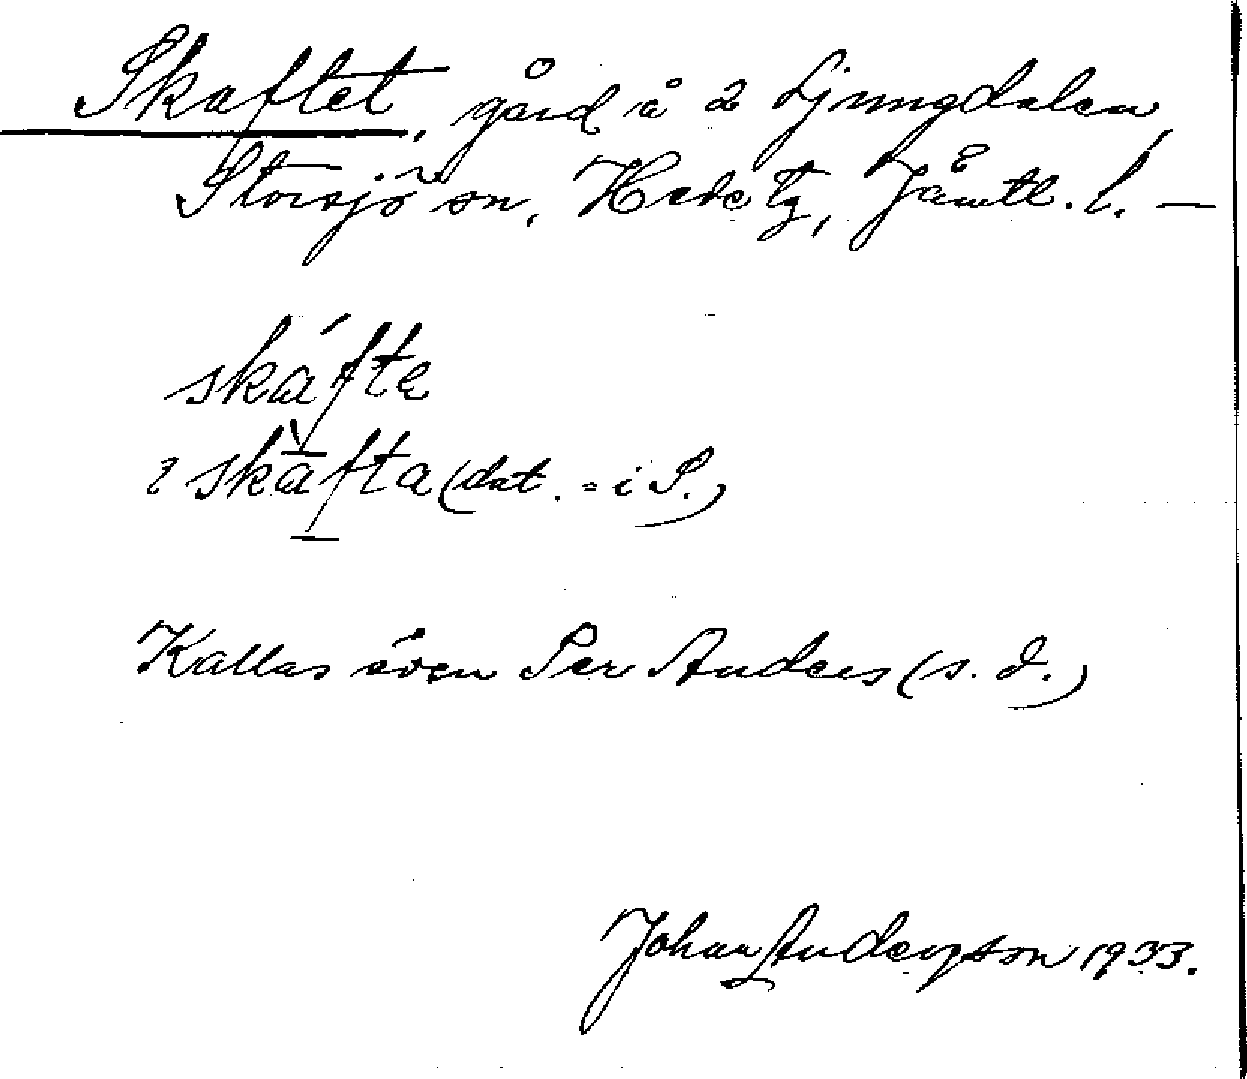 Skaftet, gård å 2 Ljungdalen,
Storsjö sn, Hede tg, Jämtl. l. –
skáfte
i skàfta (dat. = i S.)
Kallas även Per Anders (s. d.)
Johan Anderzson 1933.